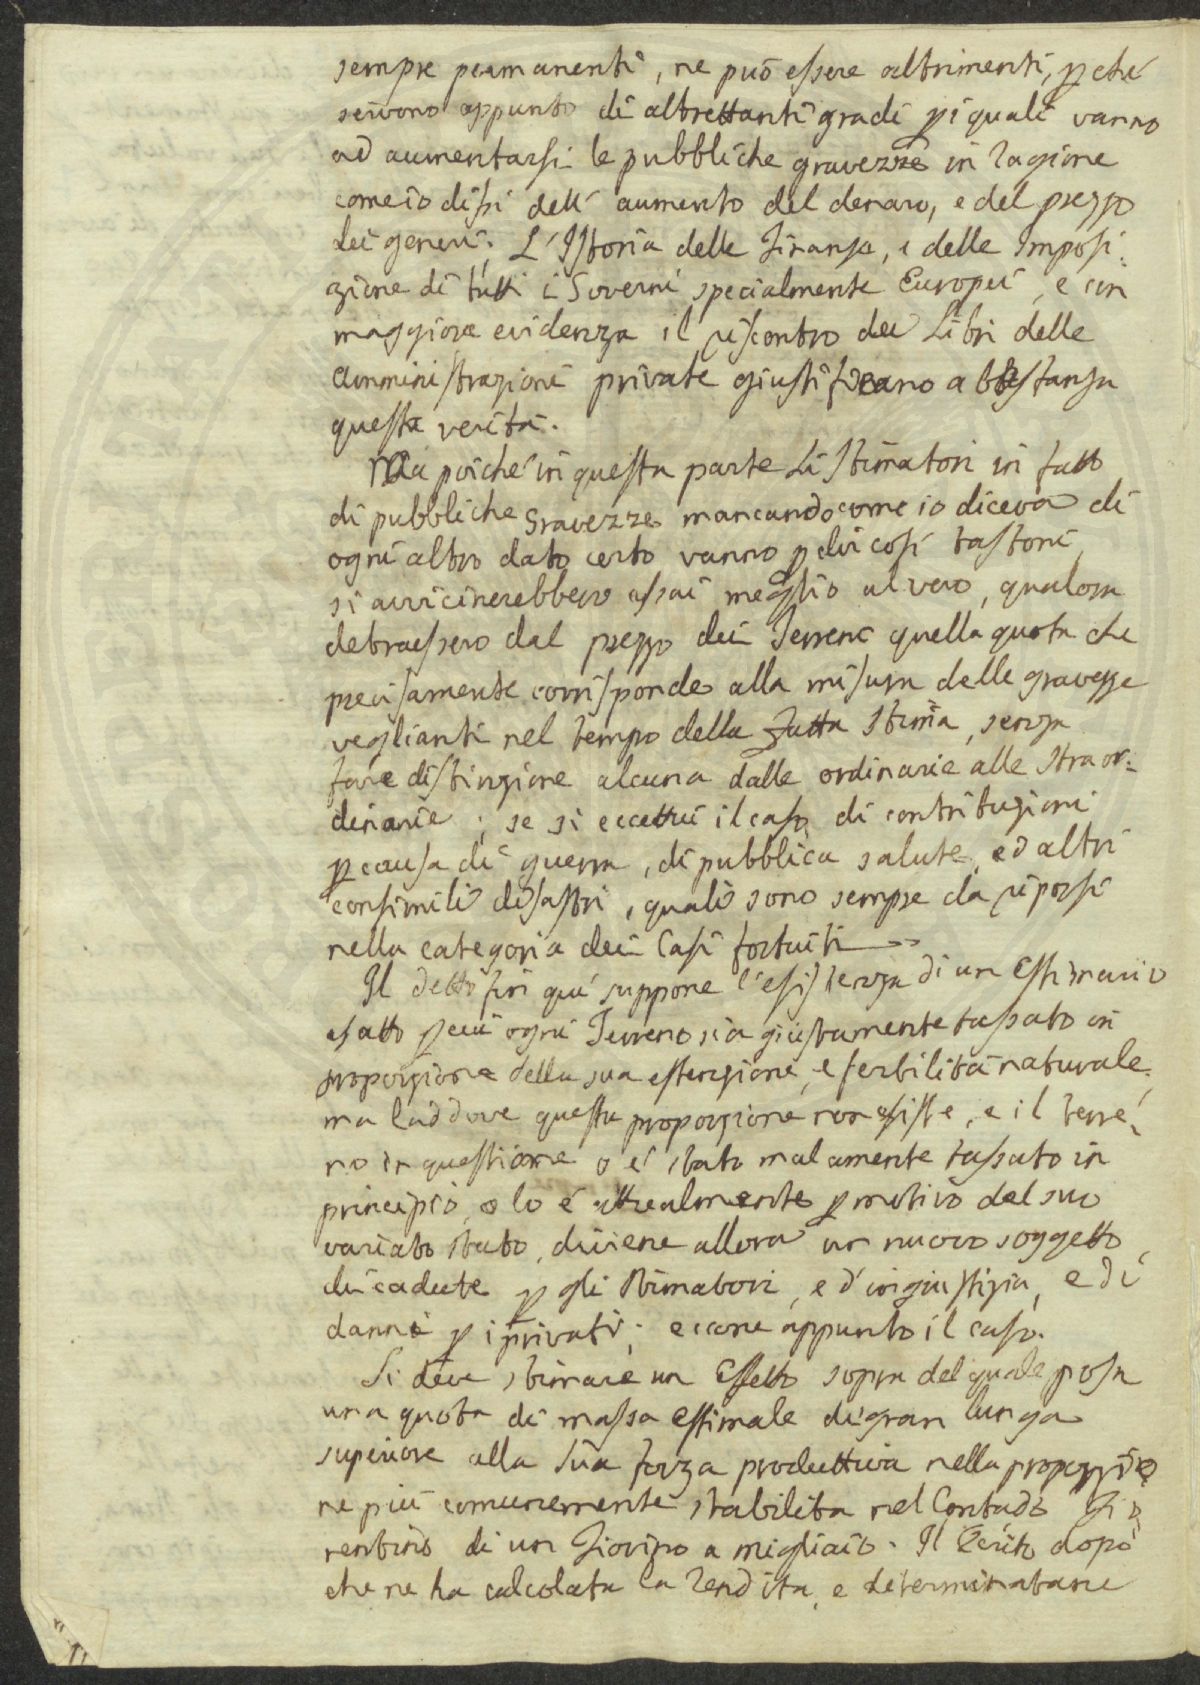 sempre permanenti, ne può essere altrimenti, pche
servono appunto di altrettanti gradi p i quali vanno
ad aumentarsi le pubbliche gravezze in ragione
come io dissi dell' aumento del denaro, e del prezzo
dei generi. L'Istoria delle Finanze, e delle Imposi-
zione di tutti i Governi specialmente Europei, e con
maggiore evidenza il riscontro dei Libri delle
Amministrazioni private giustificano abbastanza
questa verità.
Ma poiché in questa parte li Stimatori in fatto
di pubbliche Gravezze mancando come io diceva di
ogni altro dato certo vanno p dir così tastoni,
si avvicinerebbero assai meglio al vero, qualora
detraessero dal prezzo dei Terreni quella quota che
precisamente corrisponde alla misura delle gravezze
veglianti nel tempo della fatta Stima, senza
fare distinzione alcuna dalle ordinarie alle straor-
dinarie; se si eccettui il caso di contribuzioni
p causa di guerra, di pubblica salute, ed altri
consimili disastri, quali sono sempre da riporsi
nella categoria dei Casi fortuiti
Il detto fin quì suppone l'esistenza di un Estimario
esatto p cui ogni Terreno sia giustamente tassato in
proporzione della sua estenzione, e fertilità naturale,
ma laddove questa proporzione non esiste, e il terre-
no in questione o è stato malamente tassato in
principio, o lo è attualmente p motivo del suo
variato stato, diviene allora un nuovo soggetto
di cadute p gli Stimatori, e d'ingiustizia, e di
danni p i privati; eccone appunto il caso.
Si deve stimare un Effetto sopra del quale posa
una quota di massa estimale di gran lunga
superiore alla sua forza produttiva nella proporzio
ne più comunemente stabilita nel Contado Fio-
rentino di un Fiorino a migliaio. Il Perito dopo
che ne ha calcolata la rendita, e determinatane